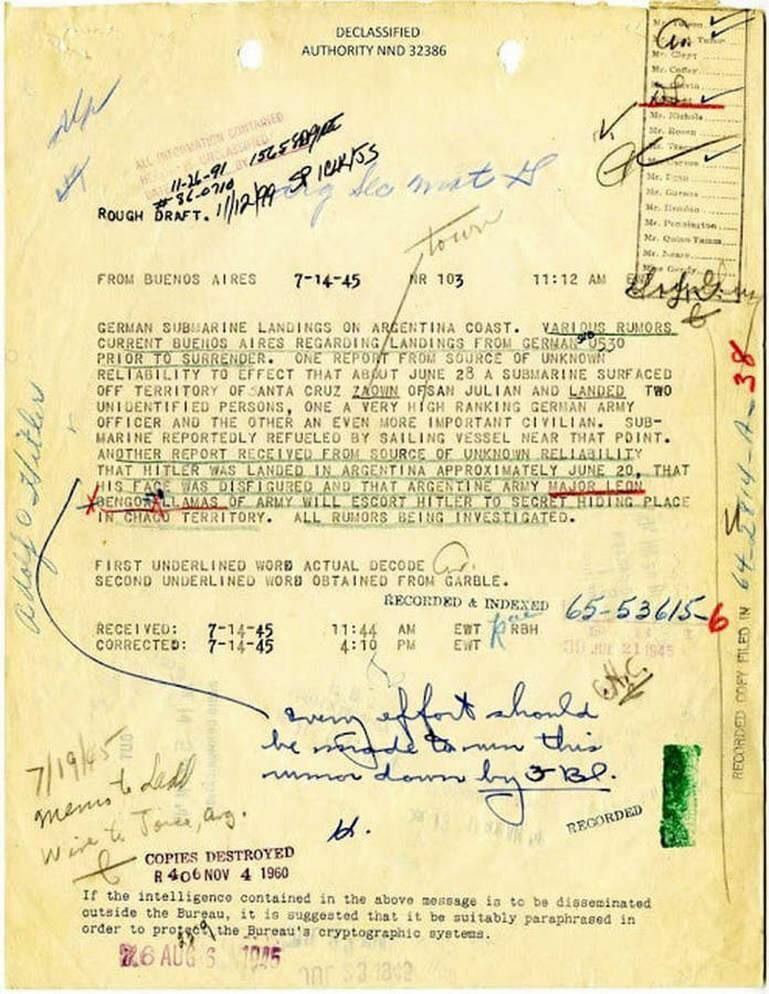 DECLASSIFIED
AUTHORITY NND 32386
Mr. Tolson
Mr. Clegg
Mr. Coffey
Mr. Nichols
Mr. Rosen
Mr. Tracy
Mr. Carson
Mr. Egan
Mr. Gurnea
Mr. Hendon
Mr. Pennington
Mr. Quinn Tamm
Mr. Nease
Miss Gandy
ALL INFORMATION CONTAINED
11-26-91
#86-0710
11/12/99
ROUGH DRAFT.
town
FROM BUENOS AIRES 7-14-45 NR 103 11:12 AM
GERMAN SUBMARINE LANDINGS ON ARGENTINA COAST. VARIOUS RUMORS
CURRENT BUENOS AIRES REGARDING LANDINGS FROM GERMAN SUB U530
PRIOR TO SURRENDER. ONE REPORT FROM SOURCE OF UNKNOWN
RELIABILITY TO EFFECT THAT ABOUT JUNE 28 A SUBMARINE SURFACED
OFF TERRITORY OF SANTA CRUZ ZAOWN OF SAN JULIAN AND LANDED TWO
UNIDENTIFIED PERSONS, ONE A VERY HIGH RANKING GERMAN ARMY
OFFICER AND THE OTHER AN EVEN MORE IMPORTANT CIVILIAN. SUB-
MARINE REPORTEDLY REFUELED BY SAILING VESSEL NEAR THAT POINT.
ANOTHER REPORT RECEIVED FROM SOURCE OF UNKNOWN RELIABILITY
THAT HITLER WAS LANDED IN ARGENTINA APPROXIMATELY JUNE 20, THAT
HIS FACE WAS DISFIGURED AND THAT ARGENTINE ARMY MAJOR LEON
BENGOA LLAMAS OF ARMY WILL ESCORT HITLER TO SECRET HIDING PLACE
IN CHACO TERRITORY. ALL RUMORS BEING INVESTIGATED.
Adolf Hitler
FIRST UNDERLINED WORD ACTUAL DECODE
SECOND UNDERLINED WORD OBTAINED FROM GARBLE.
RECORDED & INDEXED 65-53615-6
RECEIVED: 7-14-45 11:44 AM EWT RBH
CORRECTED: 7-14-45 4:10 PM EWT
JUL 21 1945
RECORDED COPY FILED IN 64-2814-A-38
every effort should
be made to run this
rumor down by SBI.
H.
7/19/45
Memo to Ladd
Wire to Joice, Arg.
RECORDED
COPIES DESTROYED
R 406 NOV 4 1960
If the intelligence contained in the above message is to be disseminated
outside the Bureau, it is suggested that it be suitably paraphrased in
order to protect the Bureau's cryptographic systems.
76 AUG 6 1945